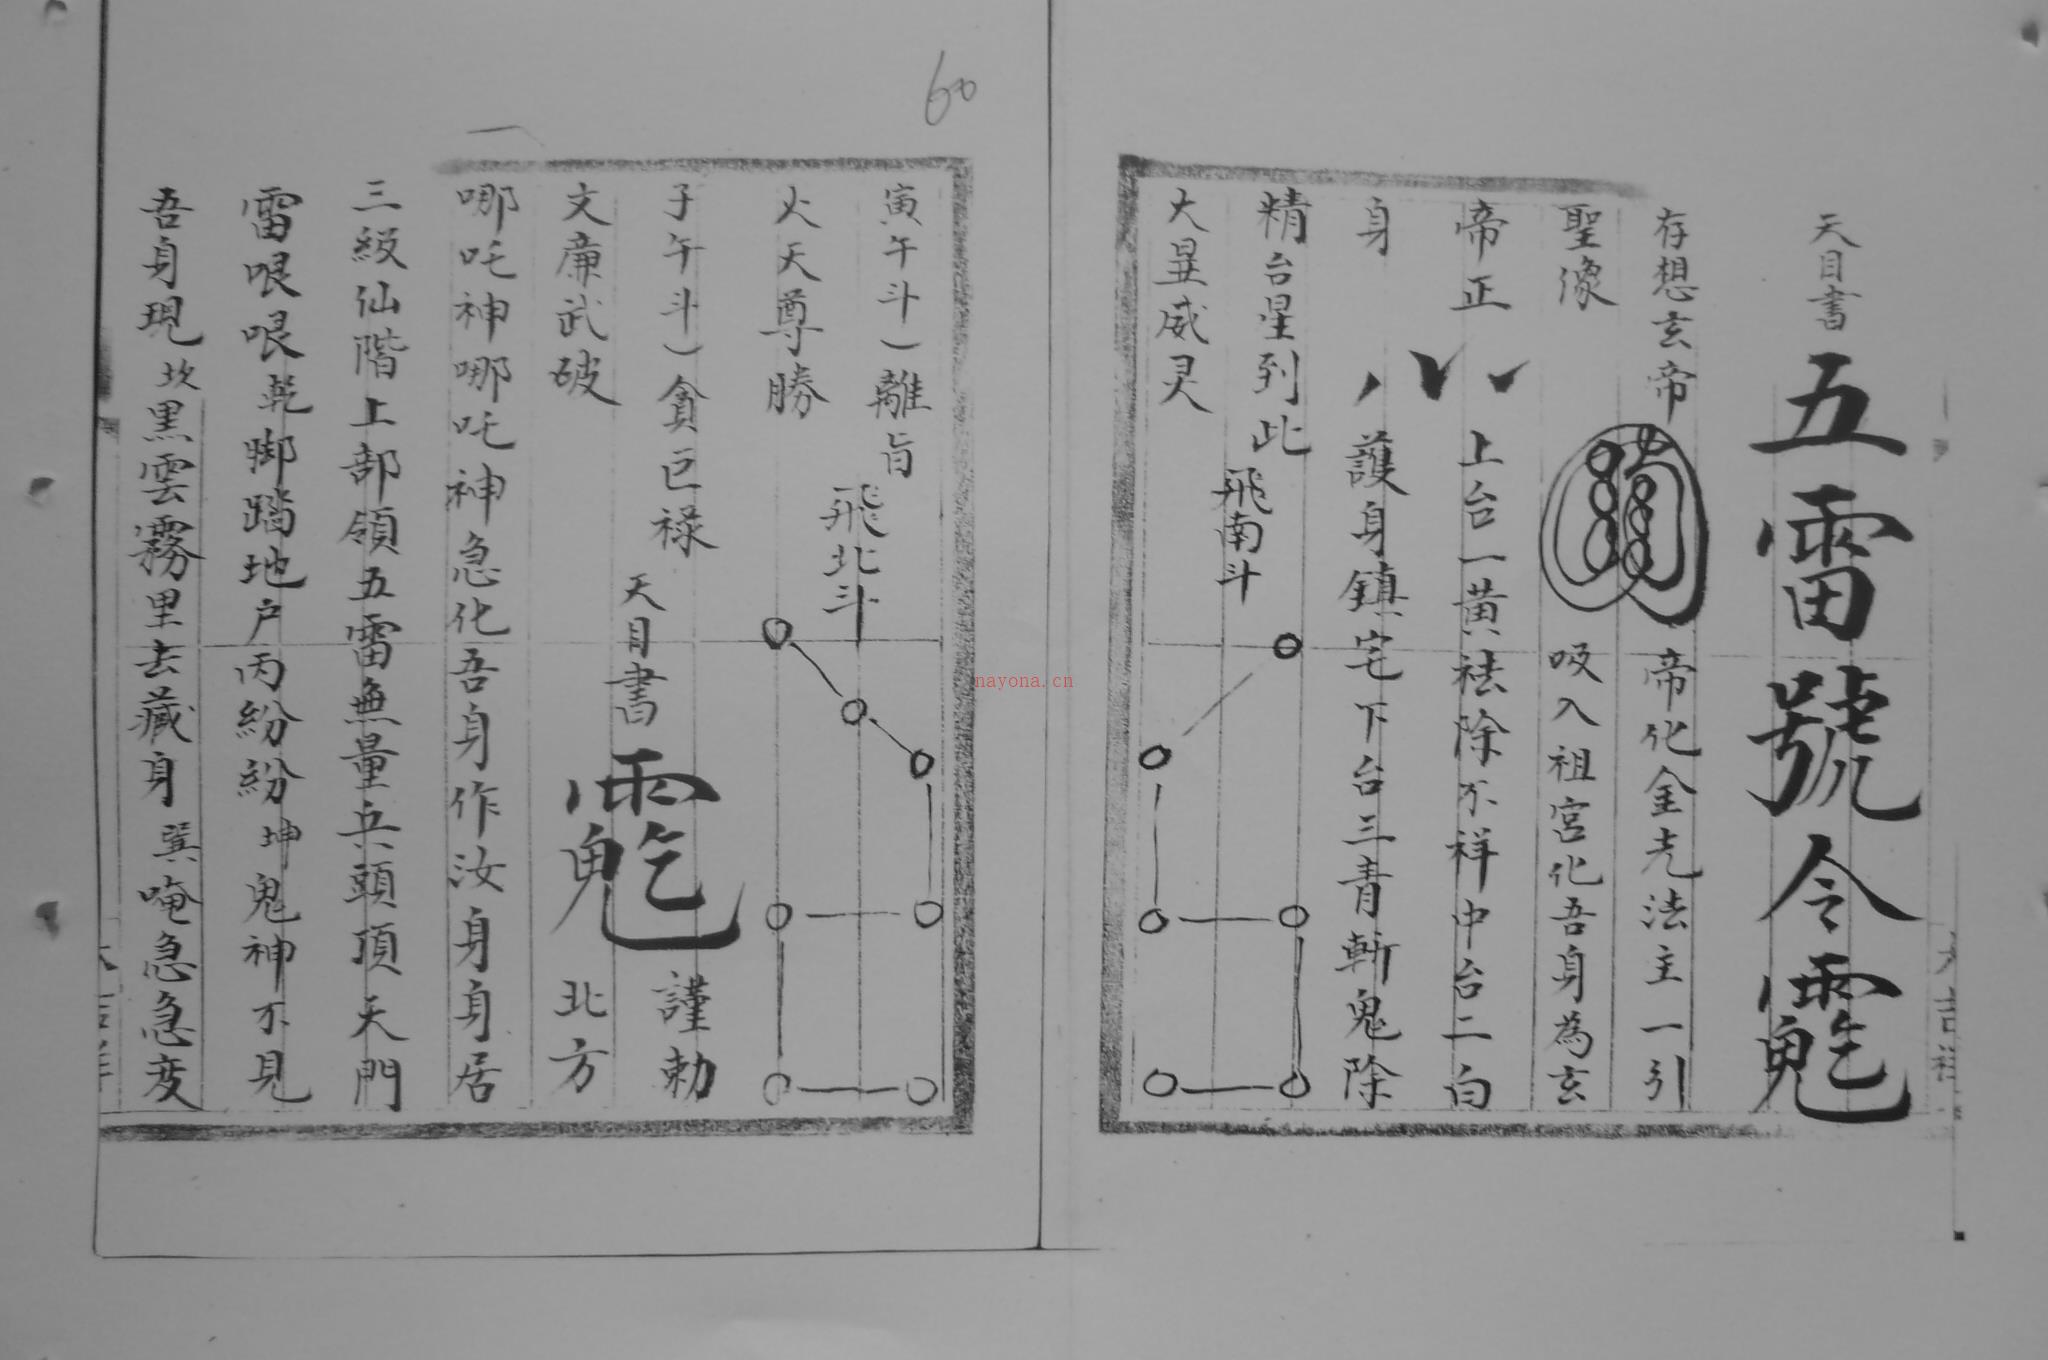 天目書 五雷號令
存想玄帝 帝化金光法主一引
聖像 吸入祖宮化吾身為玄
帝正 上台一黃祛除不祥中台二白
身 護身鎮宅下台三青斬鬼除
精台星到此
飛南斗
大聖威灵
大吉祥
60
寅午斗)離旨
飛北斗
火天尊勝
子午斗)貪巨祿
天目書 謹勅
文廉武破 北方
哪吒神哪吒神急化吾身作汝身身居
三級仙階上部領五雷無量兵頭頂天門
雷哏哏乾脚踏地户丙紛紛坤鬼神不見
吾身現坎黑雲霧里去藏身巽唵急急变
nayona.cn